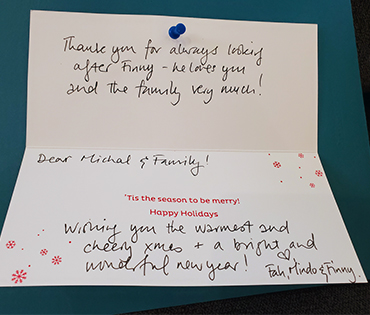 Thank you for always looking
after Finny - he loves you
and the family very much!
Dear Michal & Family!
'Tis the season to be merry!
Happy Holidays
Wishing you the warmest and
cheery xmas + a bright and
wonderful new year!
Fah, Mindo & Finny.